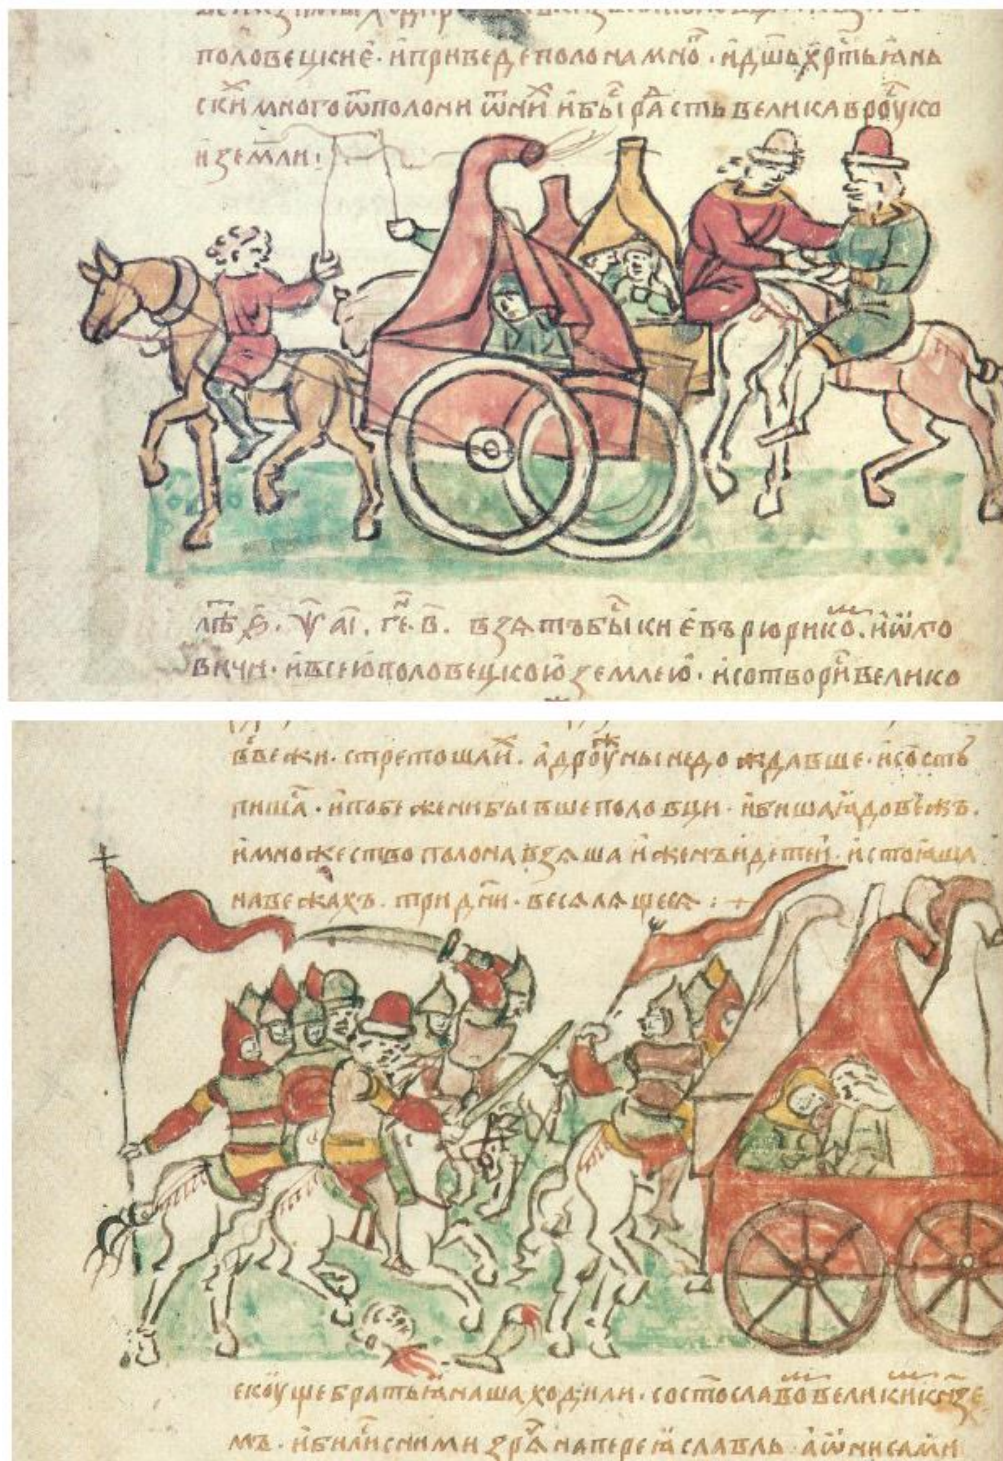 половецкиѐ · и приведе полона мно҆ · и дш҃ь хр҃тьꙗнь
скиⷯ много ѿполони ѿ ниⷯ и бы́ раⷣсть велика в роу́ско
и земли :
лѣⷮ ҂ѕ҃ · ѱ҃ аі҃ · гⷩе҃ · в҃ · взятъ бы́ киѐвъ рюрикоⷨ · и ѡлго
вичи · и всею половецкою землею · и сотвориⷭ велико
в вежи · стретоша иⷯ · а дроужины не дождавше · и состꙋ
пишаⷭ · и побежени бывше половци · и биша ꙗ до вежъ ·
и множество полона взяша и женъ и детеи · и стоꙗша
на вежахъ · три дни · веселящеся : ·
екоу ще братьꙗ наша ходили · со стославоⷨ великиⷨ кнзе
мъ · и билисꙗ с ними зря на переꙗславль · а ѡни сами